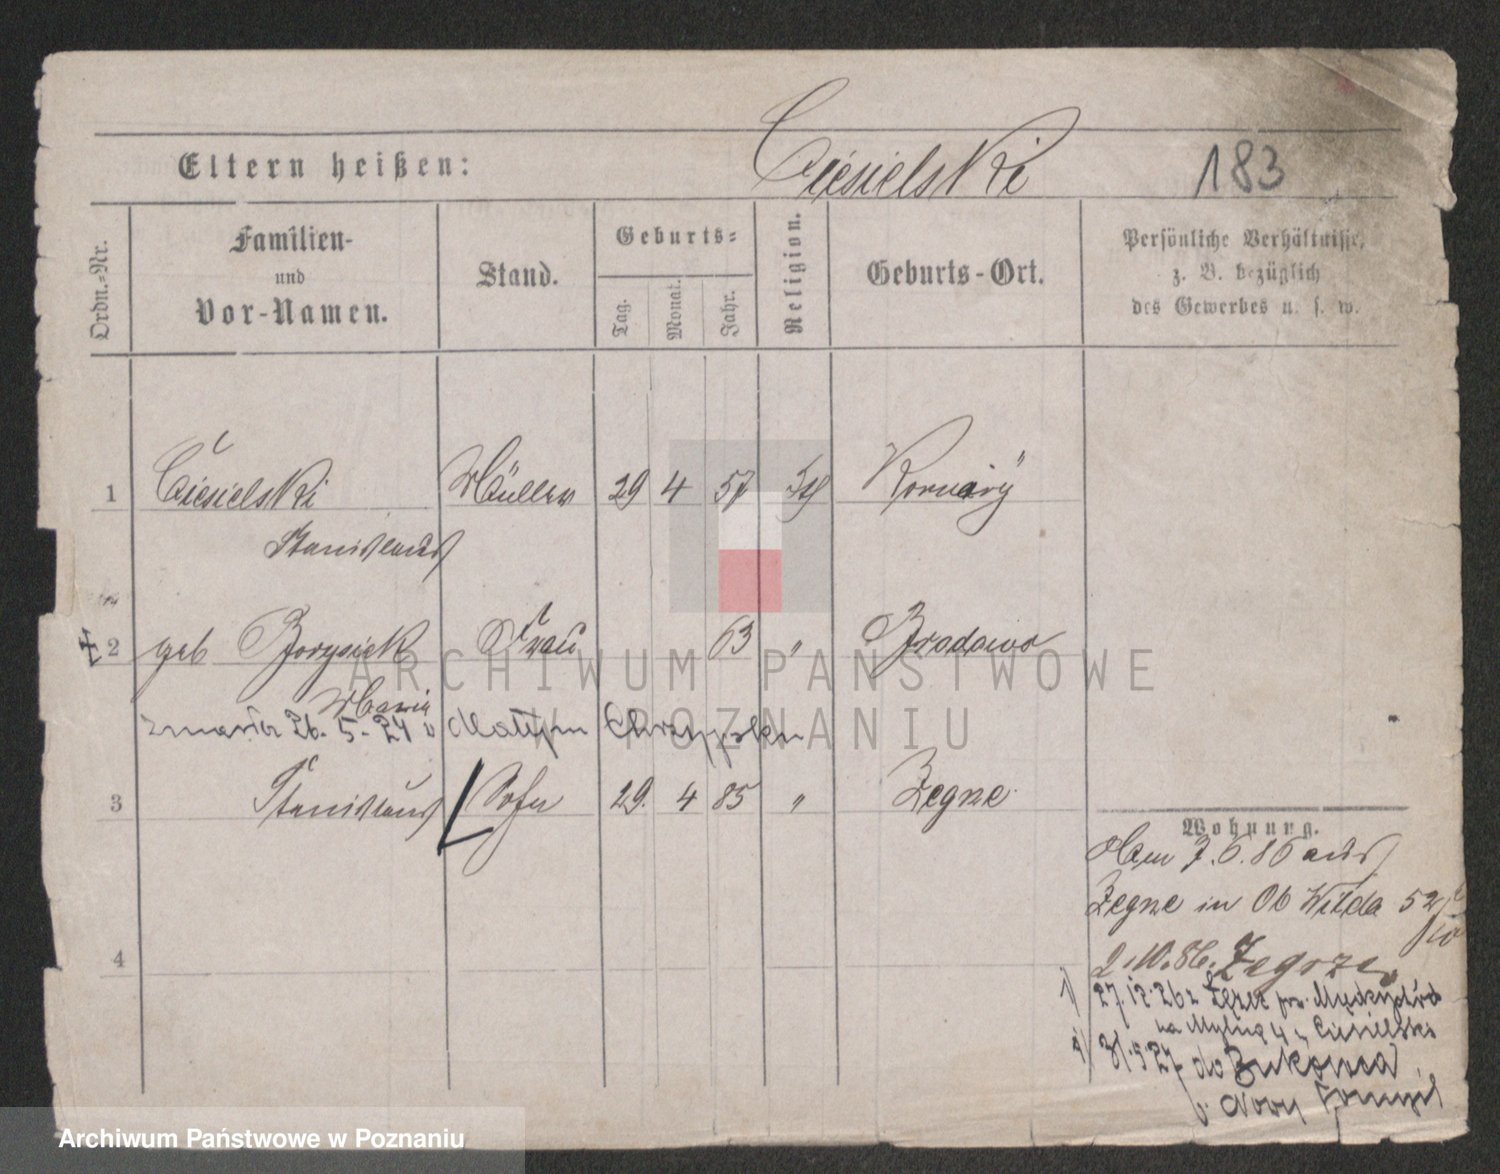 Ciesielski 183
Eltern heißen:
Ordn.-Nr.
Familien-
und
Vor-Namen.
Stand.
Geburts-
Tag.
Monat.
Jahr.
Religion.
Geburts-Ort.
Persönliche Verhältnisse,
z. B. bezüglich
des Gewerbes u. s. w.
1 Ciesielski Müller 29 4 57
Stanislaus
2 geb Frau 63 "
Maria
zmarła 26. 5. 24
3 Stanislaus Sohn 29. 4 85 " Zegrze
Wohnung.
Am 7. 6. 86 aus
Zegrze in Ob Wilda 52
4
2.10.86. Zegrze
1) 27.12.26 z
na 4 Ciesielski
31.5.27 do Bukowca
Nowy Tomyśl
ARCHIWUM PAŃSTWOWE
W POZNANIU
Archiwum Państwowe w Poznaniu